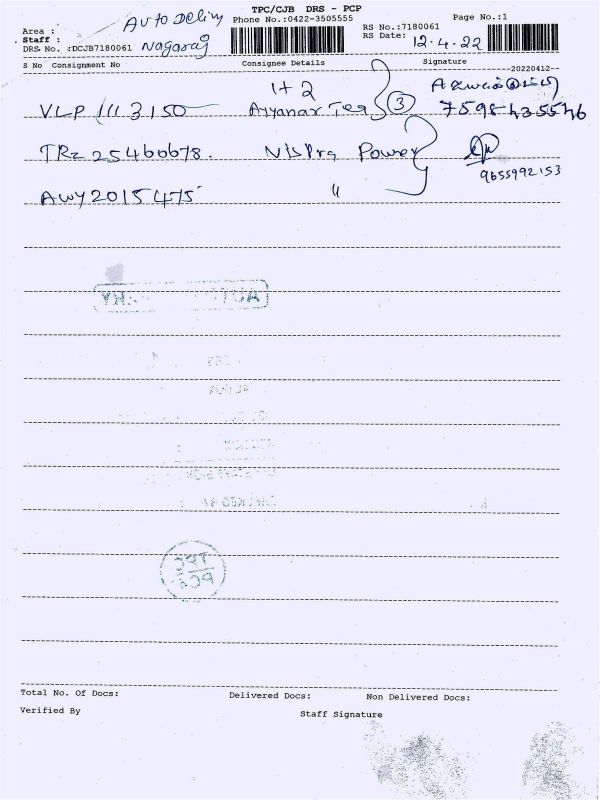 TPC/CJB DRS - PCP
Auto Delivy
Phone No.:0422-3505555
Page No.:1
Area :
RS No.:7180061
Staff :
RS Date: 12.4.22
DRS No. :DCJB7180061 Nagaraj
S No Consignment No Consignee Details Signature
--20220412--
1+2
VLP 1113150 Aiyanar Tea 3 7598435546
TRz 25460678. Nispra Power
9655992153
AWY2015475 "
Total No. Of Docs: Delivered Docs: Non Delivered Docs:
Verified By Staff Signature